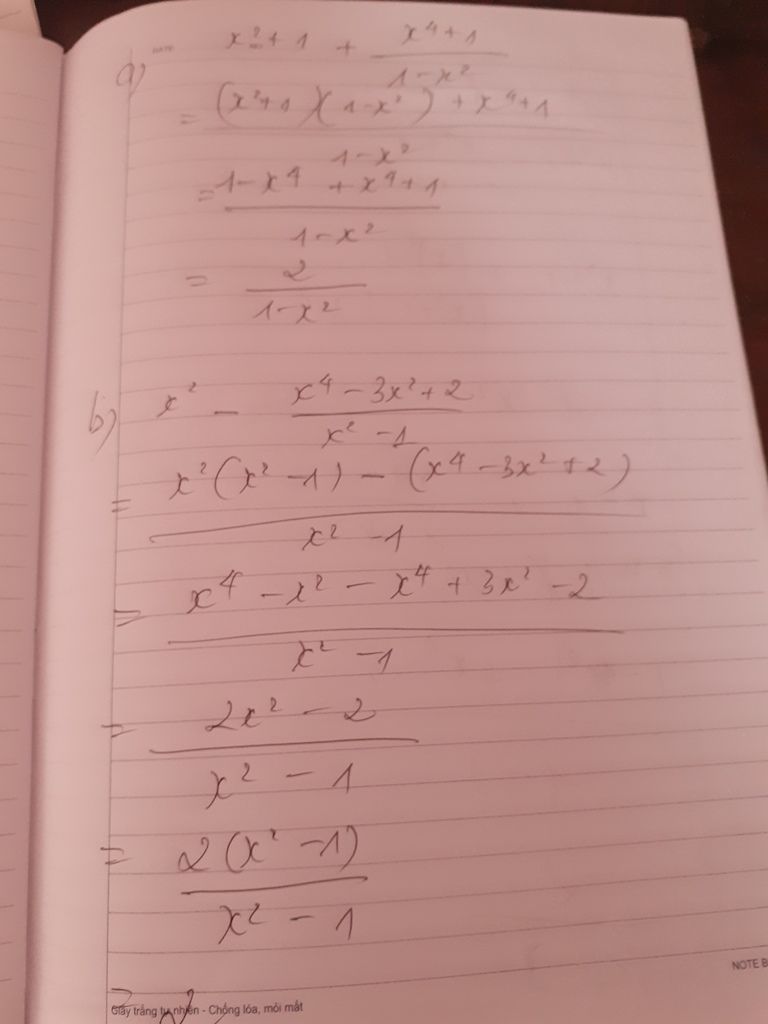 DATE
a) x² + 1 + (x⁴ + 1)/(1 - x²)
= ((x² + 1)(1 - x²) + x⁴ + 1)/(1 - x²)
= (1 - x⁴ + x⁴ + 1)/(1 - x²)
= 2/(1 - x²)
b) x² - (x⁴ - 3x² + 2)/(x² - 1)
= (x²(x² - 1) - (x⁴ - 3x² + 2))/(x² - 1)
= (x⁴ - x² - x⁴ + 3x² - 2)/(x² - 1)
= (2x² - 2)/(x² - 1)
= (2(x² - 1))/(x² - 1)
NOTE B
Giấy trắng tự nhiên - Chống lóa, mỏi mắt